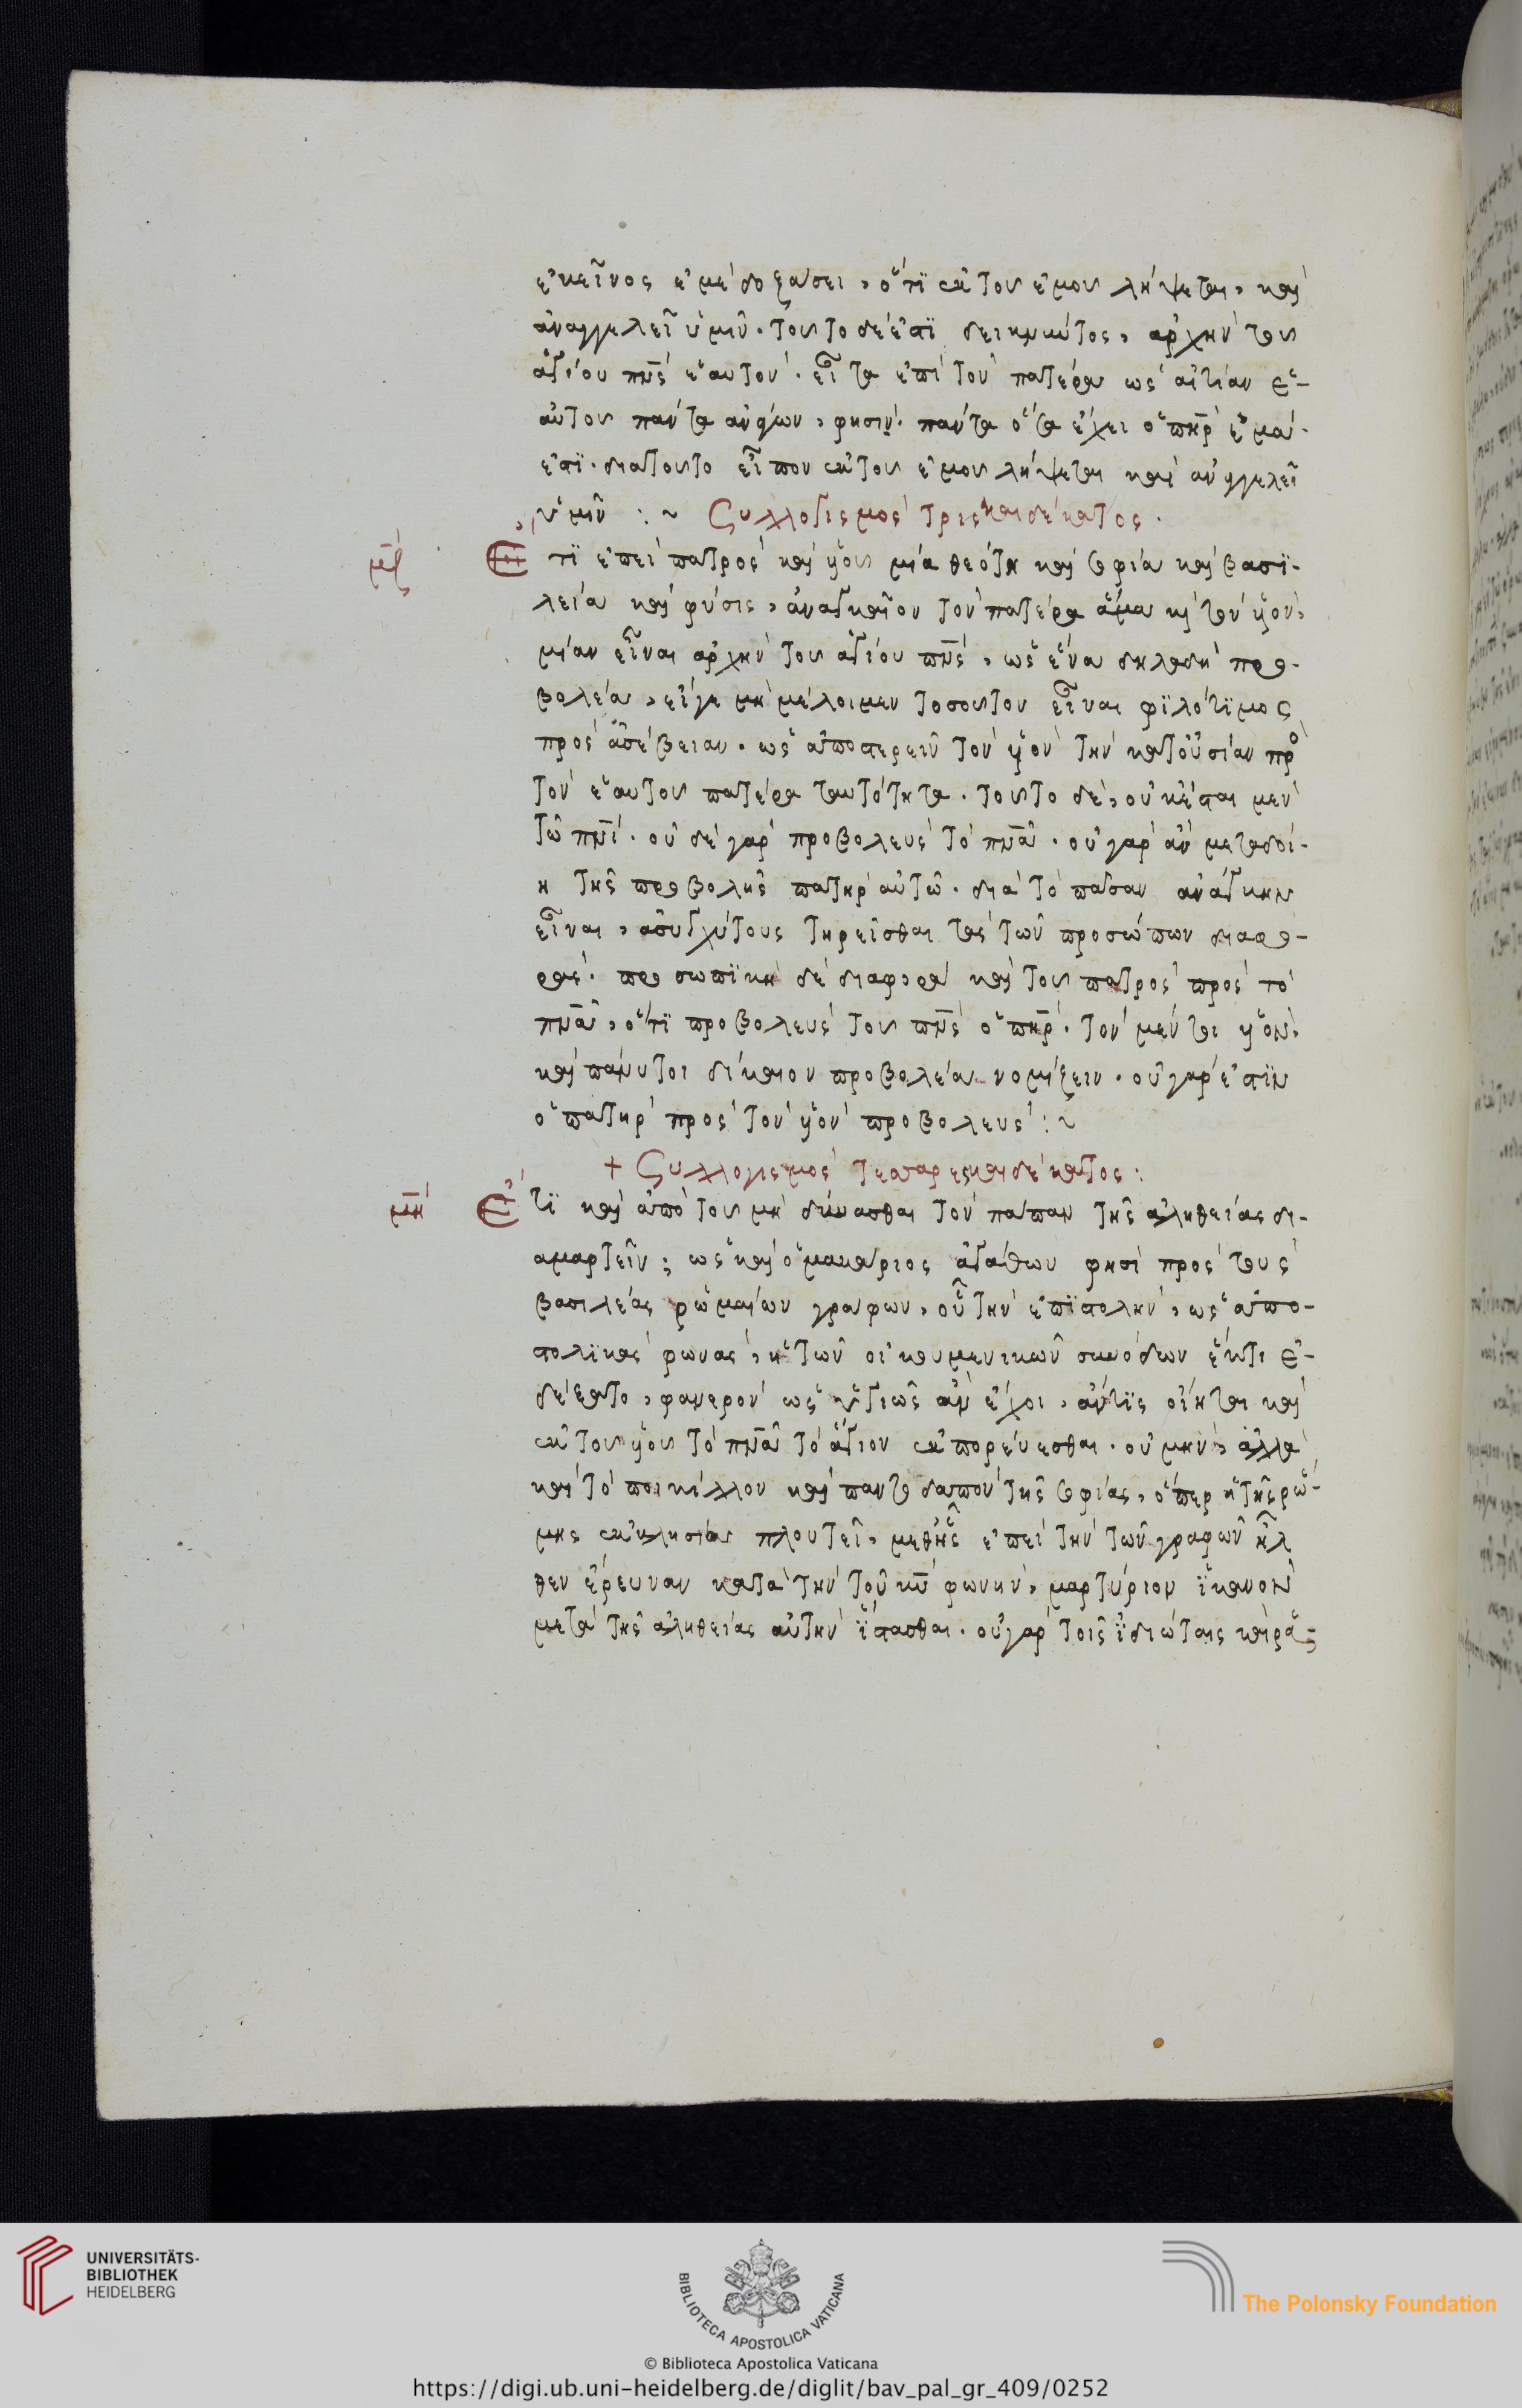 ἐκεῖνος ἐμὲ δοξάσει, ὅτι ἐκ τοῦ ἐμοῦ λήψεται, καὶ
ἀναγγελεῖ ὑμῖν. τοῦτο δέ ἐστι δεικνύντος, ἀρχὴν τοῦ
ἁγίου πν̅ς ἑαυτόν. εἶτα ἐπὶ τὸν πατέρα ὡς αἰτίαν ἑ-
αυτοῦ πάντα ἀνάγων, φησίν. πάντα ὅσα ἔχει ὁ πη̅ρ ἐμά
ἐστι. διατοῦτο εἶπον ἐκ τοῦ ἐμοῦ λήψεται καὶ ἀναγγελεῖ
ὑμῖν :~ Συλλογισμὸς τρισκαιδέκατος.
μζ Ἔτι ἐπεὶ πατρὸς καὶ υἱοῦ μία θεότης καὶ σοφία καὶ βασι-
λεία καὶ φύσις, ἀναγκαῖον τὸν πατέρα ἅμα κ τὸν υἱὸν,
μίαν εἶναι ἀρχὴν τοῦ ἁγίου πν̅ς, ὡς ἕνα δηλαδὴ προ-
βολέα, εἴγε μὴ μέλοιμεν τοσοῦτον εἶναι φιλότιμος
πρὸς ἀσέβειαν. ὡς ἀποστερεῖν τὸν υἱὸν τὴν κατοὐσίαν πρὸ
τὸν ἑαυτοῦ πατέρα ταυτότητα. τοῦτο δὲ, οὐκἔσται μὲν
τῶ πν̅ι. οὐδὲ γὰρ προβολεὺς τὸ πν̅α. οὐ γὰρ ἂν μεταδοί-
η τῆς προβολῆς πατὴρ αὐτῶ. διὰ τὸ πᾶσαν ἀνάγκην
εἶναι, ἀσυγχύτους τηρεῖσθαι τὰς τῶν προσώπων διαφο-
ράς. προσωπικὴ δὲ διαφορὰ καὶ τοῦ πατρὸς πρὸς τὸ
πν̅α, ὅτι προβολεὺς τοῦ πν̅ς ὁ πη̅ρ. τὸν μέντοι υἱὸν,
καὶ πάνυτοι δίκαιον προβολέα νομίζειν. οὐ γάρ ἐστιν
ὁ πατὴρ πρὸς τὸν υἱὸν προβολεύς :~
+ Συλλογισμὸς τεσσαρεσκαιδέκατος :
μη Ἔτι καὶ ἀπὸ τοῦ μὴ δύνασθαι τὸν πάπαν τῆς ἀληθείας δι-
αμαρτεῖν; ὡς καὶ ὁ μακάριος ἀγάθων φησὶ πρὸς τοὺς
βασιλέας ῥωμαίων γράφων, οὗ τὴν ἐπιστολὴν, ὡς ἀπο-
στολικὰς φωνὰς, ἡ τῶν οἰκουμενικῶν συνόδων ἕκτη ἐ-
δέξατο, φανερὸν ὡς ὑγιῶς ἂν ἔχοι, ἄντις οἴηται καὶ
ἐκ τοῦ υἱοῦ τὸ πν̅α τὸ ἅγιον ἐκπορεύεσθαι. οὐ μὴν, ἀλλὰ
καὶ τὸ ποικίλλον καὶ παντοδαπὸν τῆς σοφίας, ὅπερ ἡ τῆς ῥώ-
μης ἐκκλησία πλουτεῖ, μεθῆς ἐπεὶ τὴν τῶν γραφῶν ἦλ
θεν ἔρευναν κατὰ τὴν τοῦ κυ̅ φωνὴν, μαρτύριον ἱκανὸν
μετὰ τῆς ἀληθείας αὐτὴν ἵστασθαι. οὐ γὰρ τοῖς ἰδιώταις
UNIVERSITÄTS-
BIBLIOTHEK
HEIDELBERG
BIBLIOTECA APOSTOLICA VATICANA
The Polonsky Foundation
© Biblioteca Apostolica Vaticana
https://digi.ub.uni-heidelberg.de/diglit/bav_pal_gr_409/0252